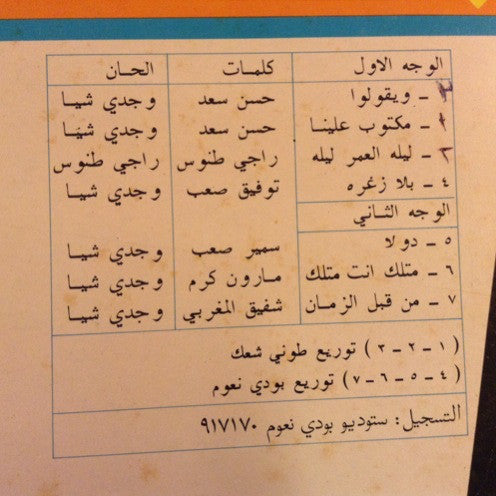 الوجه الاول كلمات الحان
٣ ـ ويقولوا حسن سعد وجدي شيا
١ ـ مكتوب علينا حسن سعد وجدي شيا
٢ ـ ليله العمر ليله راجي طنوس راجي طنوس
٤ ـ بلا زغره توفيق صعب وجدي شيا
الوجه الثاني
٥ ـ دولا سمير صعب وجدي شيا
٦ ـ متلك انت متلك مارون كرم وجدي شيا
٧ ـ من قبل الزمان شفيق المغربي وجدي شيا
(١ ـ ٢ ـ ٣) توريع طوني شعك
(٤ ـ ٥ ـ ٦ ـ ٧) توريع بودي نعوم
التسجيل: ستوديو بودي نعوم ٩١٧١٧٠